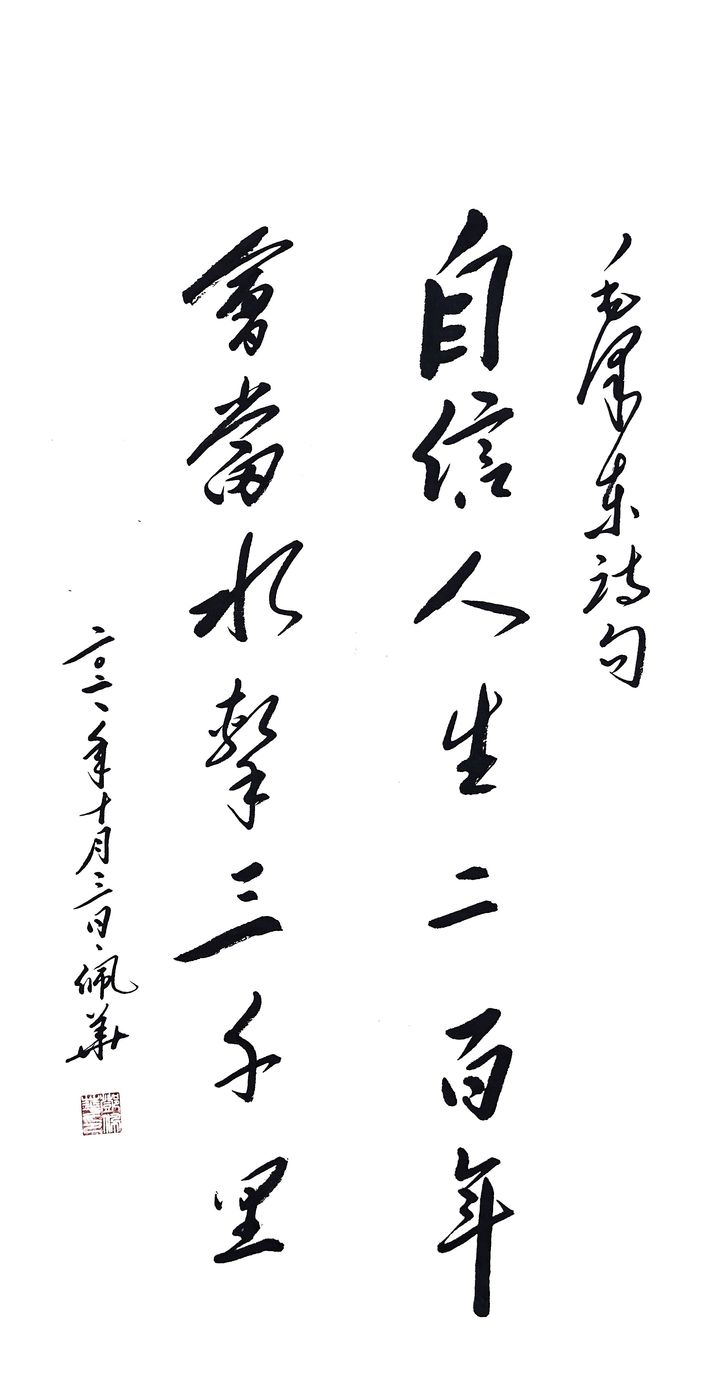 毛泽东詩句
自信人生二百年
會當水擊三千里
二〇二一年十月三日佩華